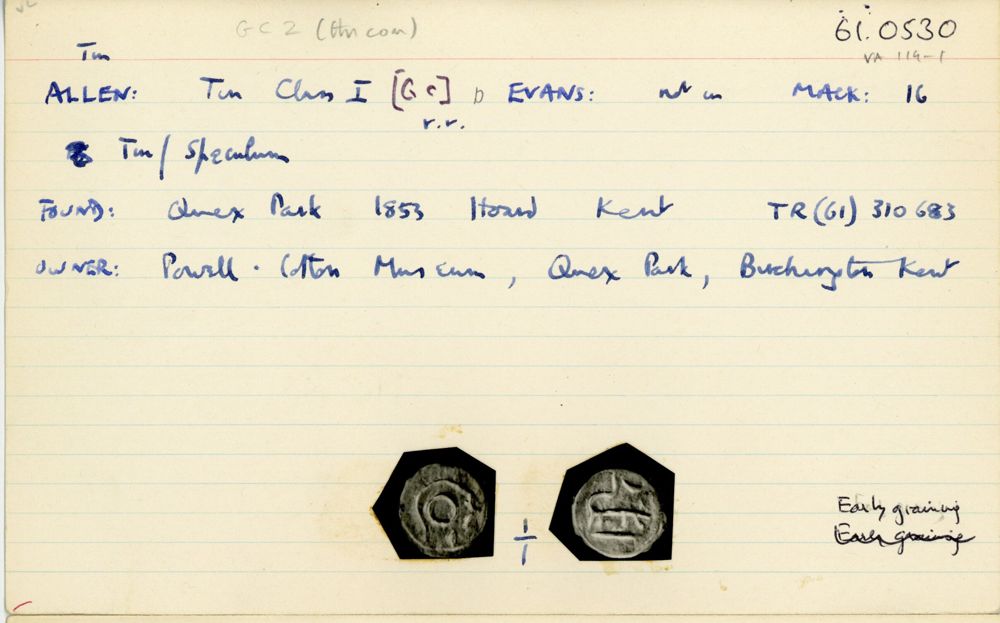 GC2 (thin coin) 61.0530
Tin VA 119-1
ALLEN: Tin Class I [G c] D EVANS: not in MACK: 16
r.r.
Tin/Speculum
FOUND: Quex Park 1853 Hoard Kent TR(61) 310683
OWNER: Powell-Cotton Museum, Quex Park, Birchington Kent
1/1
Early graining
Early graining